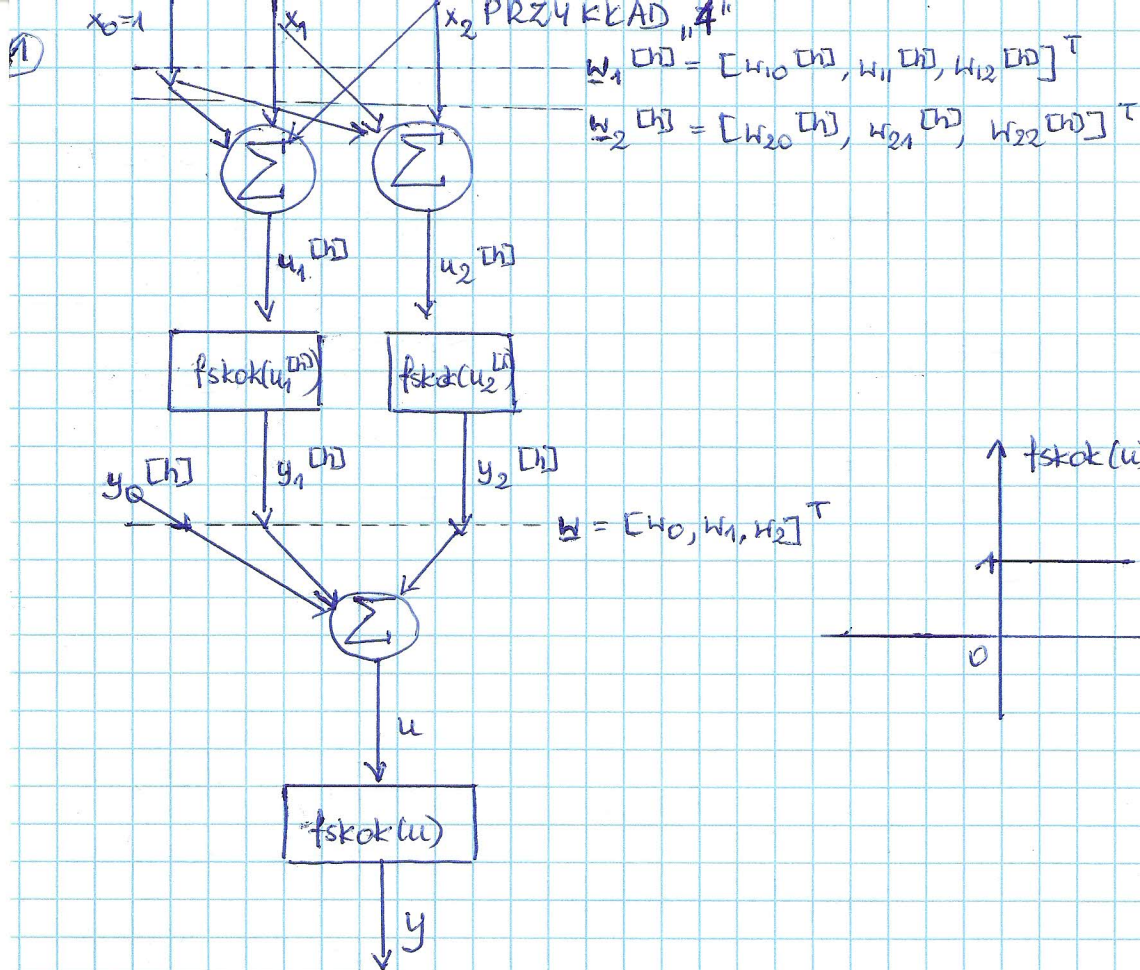 x₀=1 x₁ x₂ PRZYKŁAD „4"
1
w₁^[h] = [w₁₀^[h], w₁₁^[h], w₁₂^[h]]^T
w₂^[h] = [w₂₀^[h], w₂₁^[h], w₂₂^[h]]^T
Σ Σ
u₁^[h] u₂^[h]
fskok(u₁^[h]) fskok(u₂^[h])
y₀^[h] y₁^[h] y₂^[h]
fskok(u)
w = [w₀, w₁, w₂]^T
1
Σ
0
u
fskok(u)
y